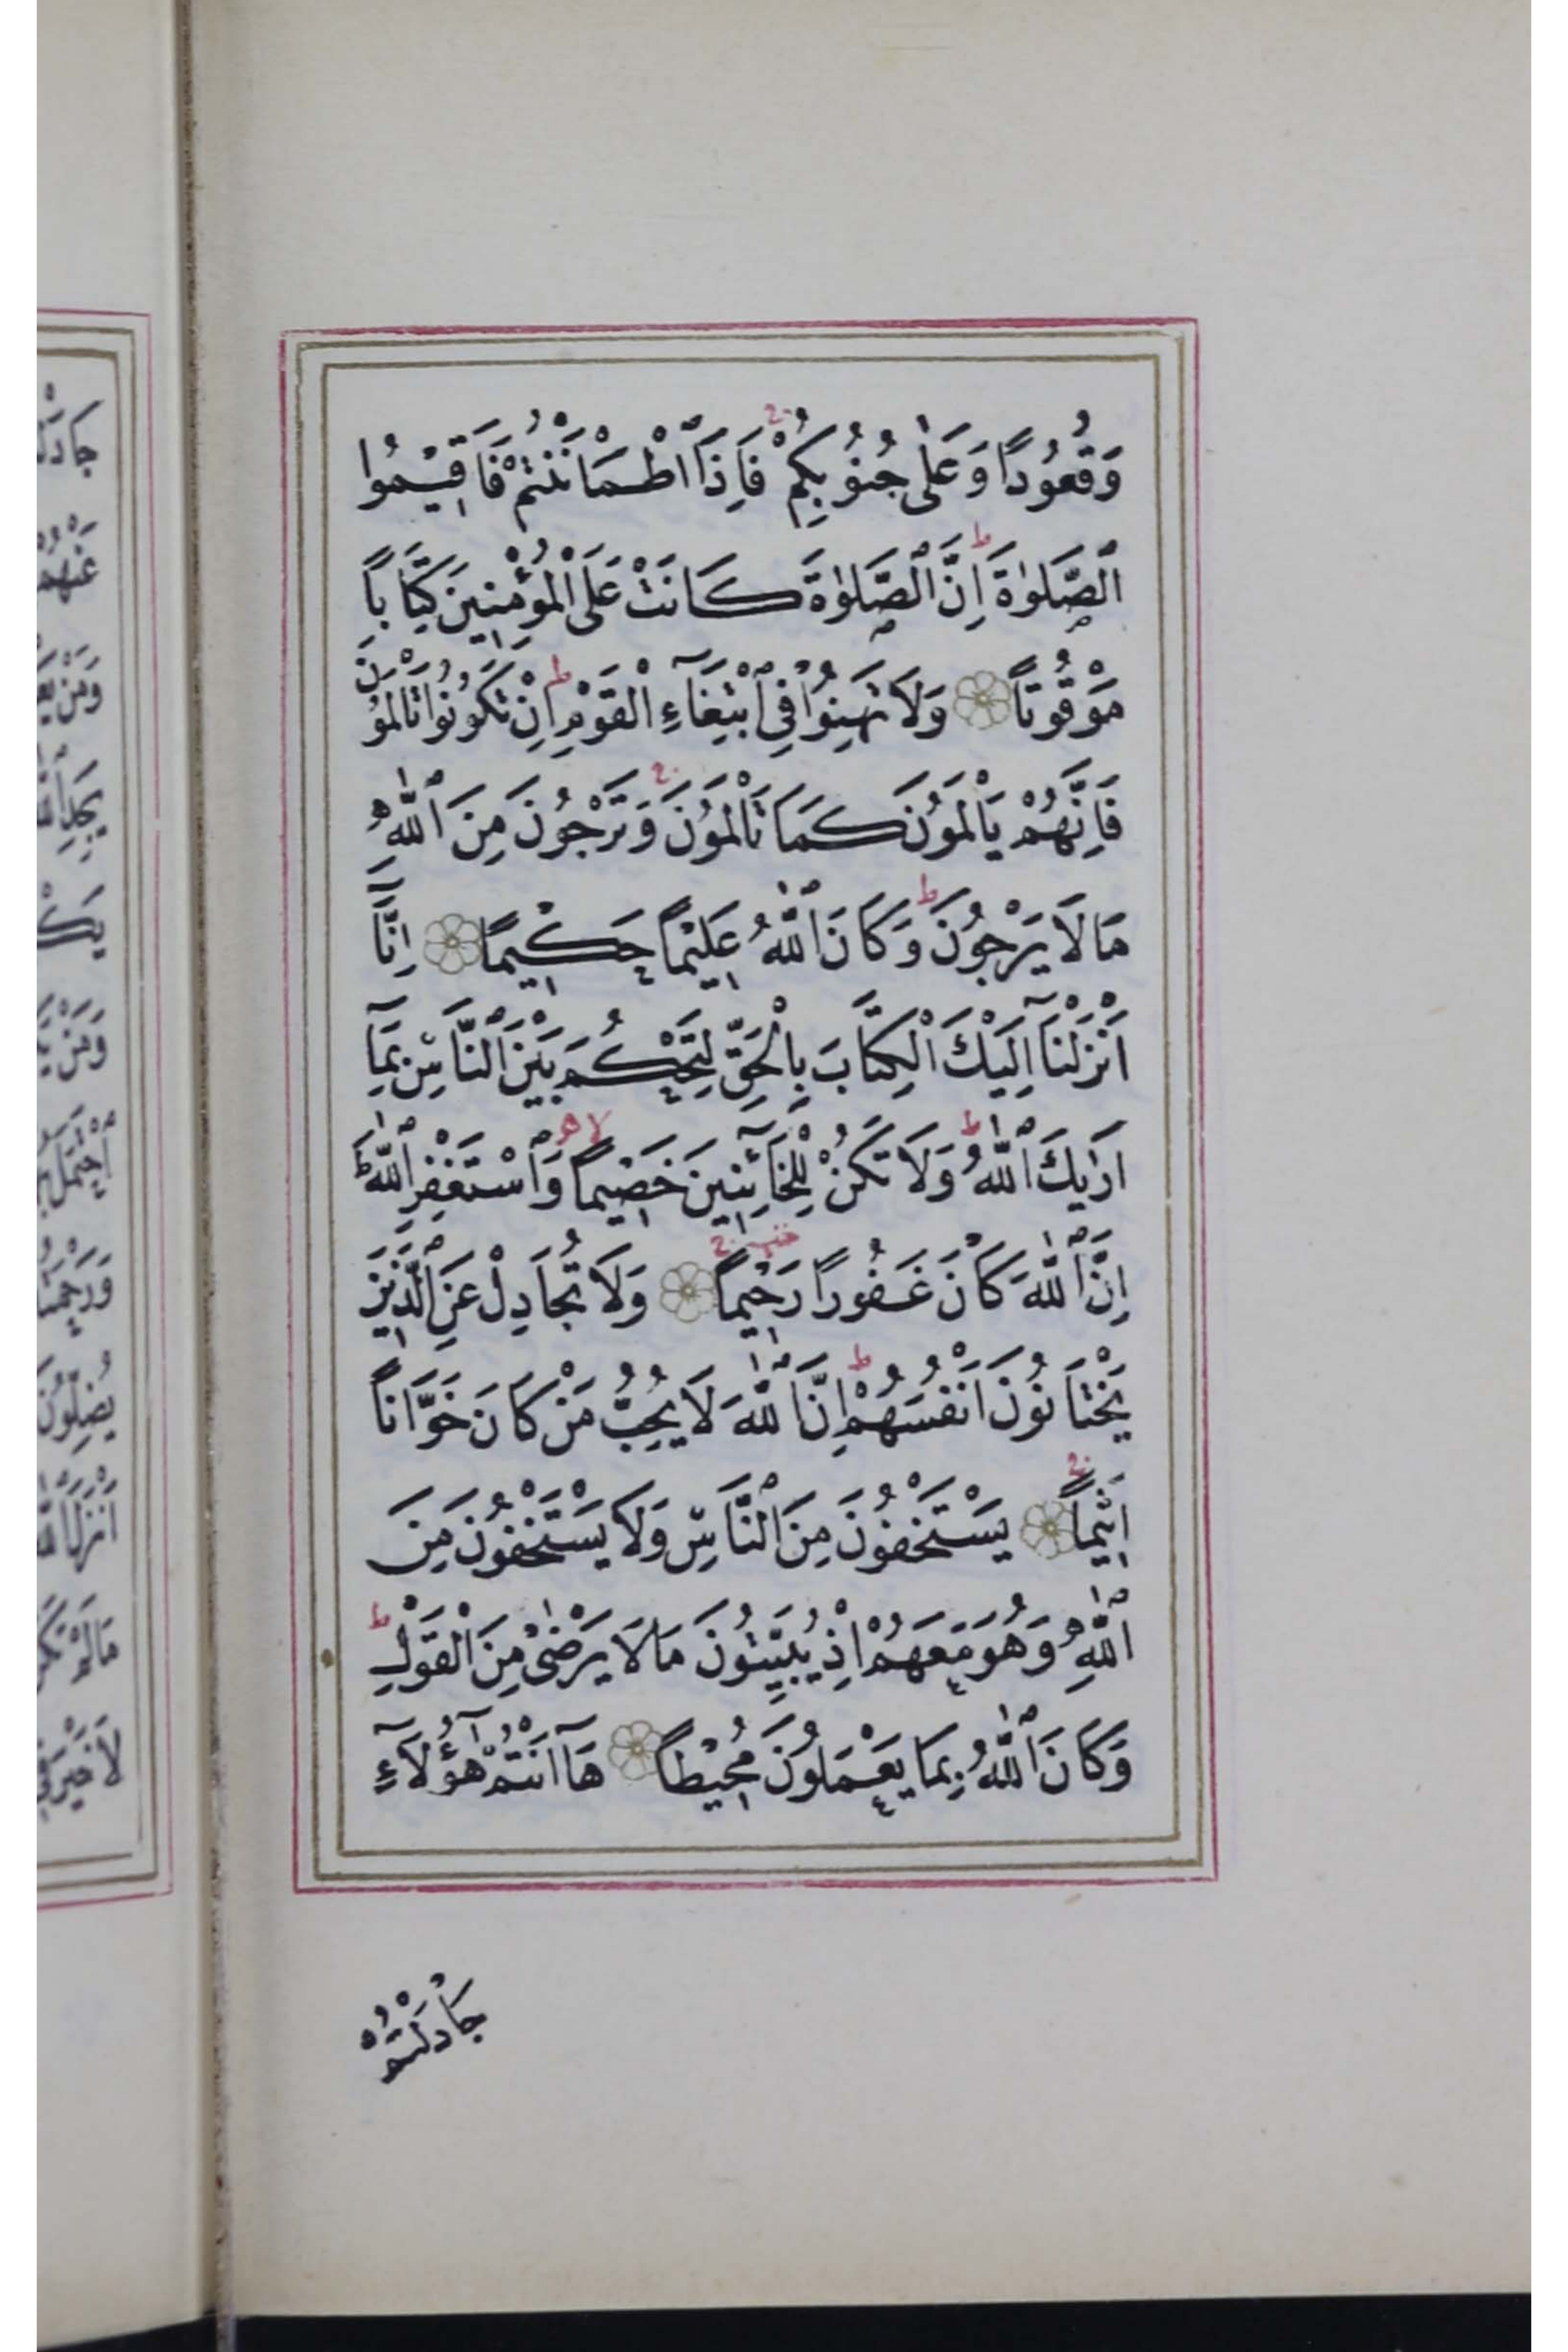 وَقُعُودًا وَعَلٰى جُنُوبِكُمْ فَاِذَا اطْمَاْنَنْتُمْ فَاَقِيْمُوا
الصَّلٰوةَ اِنَّ الصَّلٰوةَ كَانَتْ عَلَى الْمُؤْمِنِينَ كِتَابًا
مَوْقُوتًا وَلَا تَهِنُوا فِي ابْتِغَاءِ الْقَوْمِ اِنْ تَكُونُوا تَاْلَمُونَ
فَاِنَّهُمْ يَاْلَمُونَ كَمَا تَاْلَمُونَ وَتَرْجُونَ مِنَ اللّٰهِ
مَا لَا يَرْجُونَ وَكَانَ اللّٰهُ عَلِيْمًا حَكِيْمًا اِنَّا
اَنْزَلْنَا اِلَيْكَ الْكِتَابَ بِالْحَقِّ لِتَحْكُمَ بَيْنَ النَّاسِ بِمَا
اَرٰيكَ اللّٰهُ وَلَا تَكُنْ لِلْخَائِنِينَ خَصِيْمًا وَاسْتَغْفِرِ اللّٰهَ
اِنَّ اللّٰهَ كَانَ غَفُورًا رَحِيْمًا وَلَا تُجَادِلْ عَنِ الَّذِينَ
يَخْتَانُونَ اَنْفُسَهُمْ اِنَّ اللّٰهَ لَا يُحِبُّ مَنْ كَانَ خَوَّانًا
اَثِيْمًا يَسْتَخْفُونَ مِنَ النَّاسِ وَلَا يَسْتَخْفُونَ مِنَ
اللّٰهِ وَهُوَ مَعَهُمْ اِذْ يُبَيِّتُونَ مَا لَا يَرْضٰى مِنَ الْقَوْلِ
وَكَانَ اللّٰهُ بِمَا يَعْمَلُونَ مُحِيْطًا هَا اَنْتُمْ هٰؤُلَاءِ
جَادَلْتُمْ